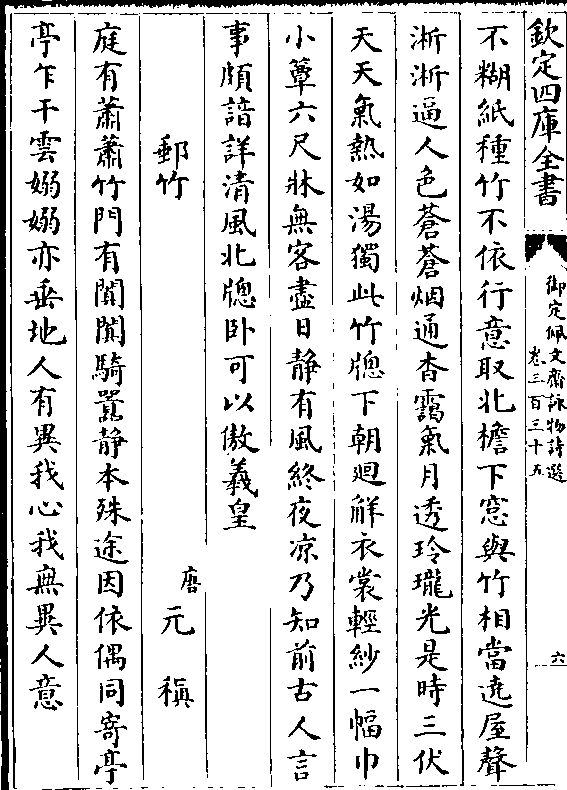 欽定四庫全書
御定佩文齋詠物詩選
卷三百三十五
六
不糊紙種竹不依行意取北檐下窓與竹相當遶屋聲
淅淅逼人色蒼蒼烟通杳靄氣月透玲瓏光是時三伏
天天氣熱如湯獨此竹牎下朝廻解衣裳輕紗一幅巾
小簟六尺牀無客盡日靜有風終夜凉乃知前古人言
事頗諳詳清風北牎卧可以傲羲皇
郵竹
唐 元稹
庭有蕭蕭竹門有闐闐騎囂靜本殊途因依偶同寄亭
亭乍干雲嫋嫋亦垂地人有異我心我無異人意